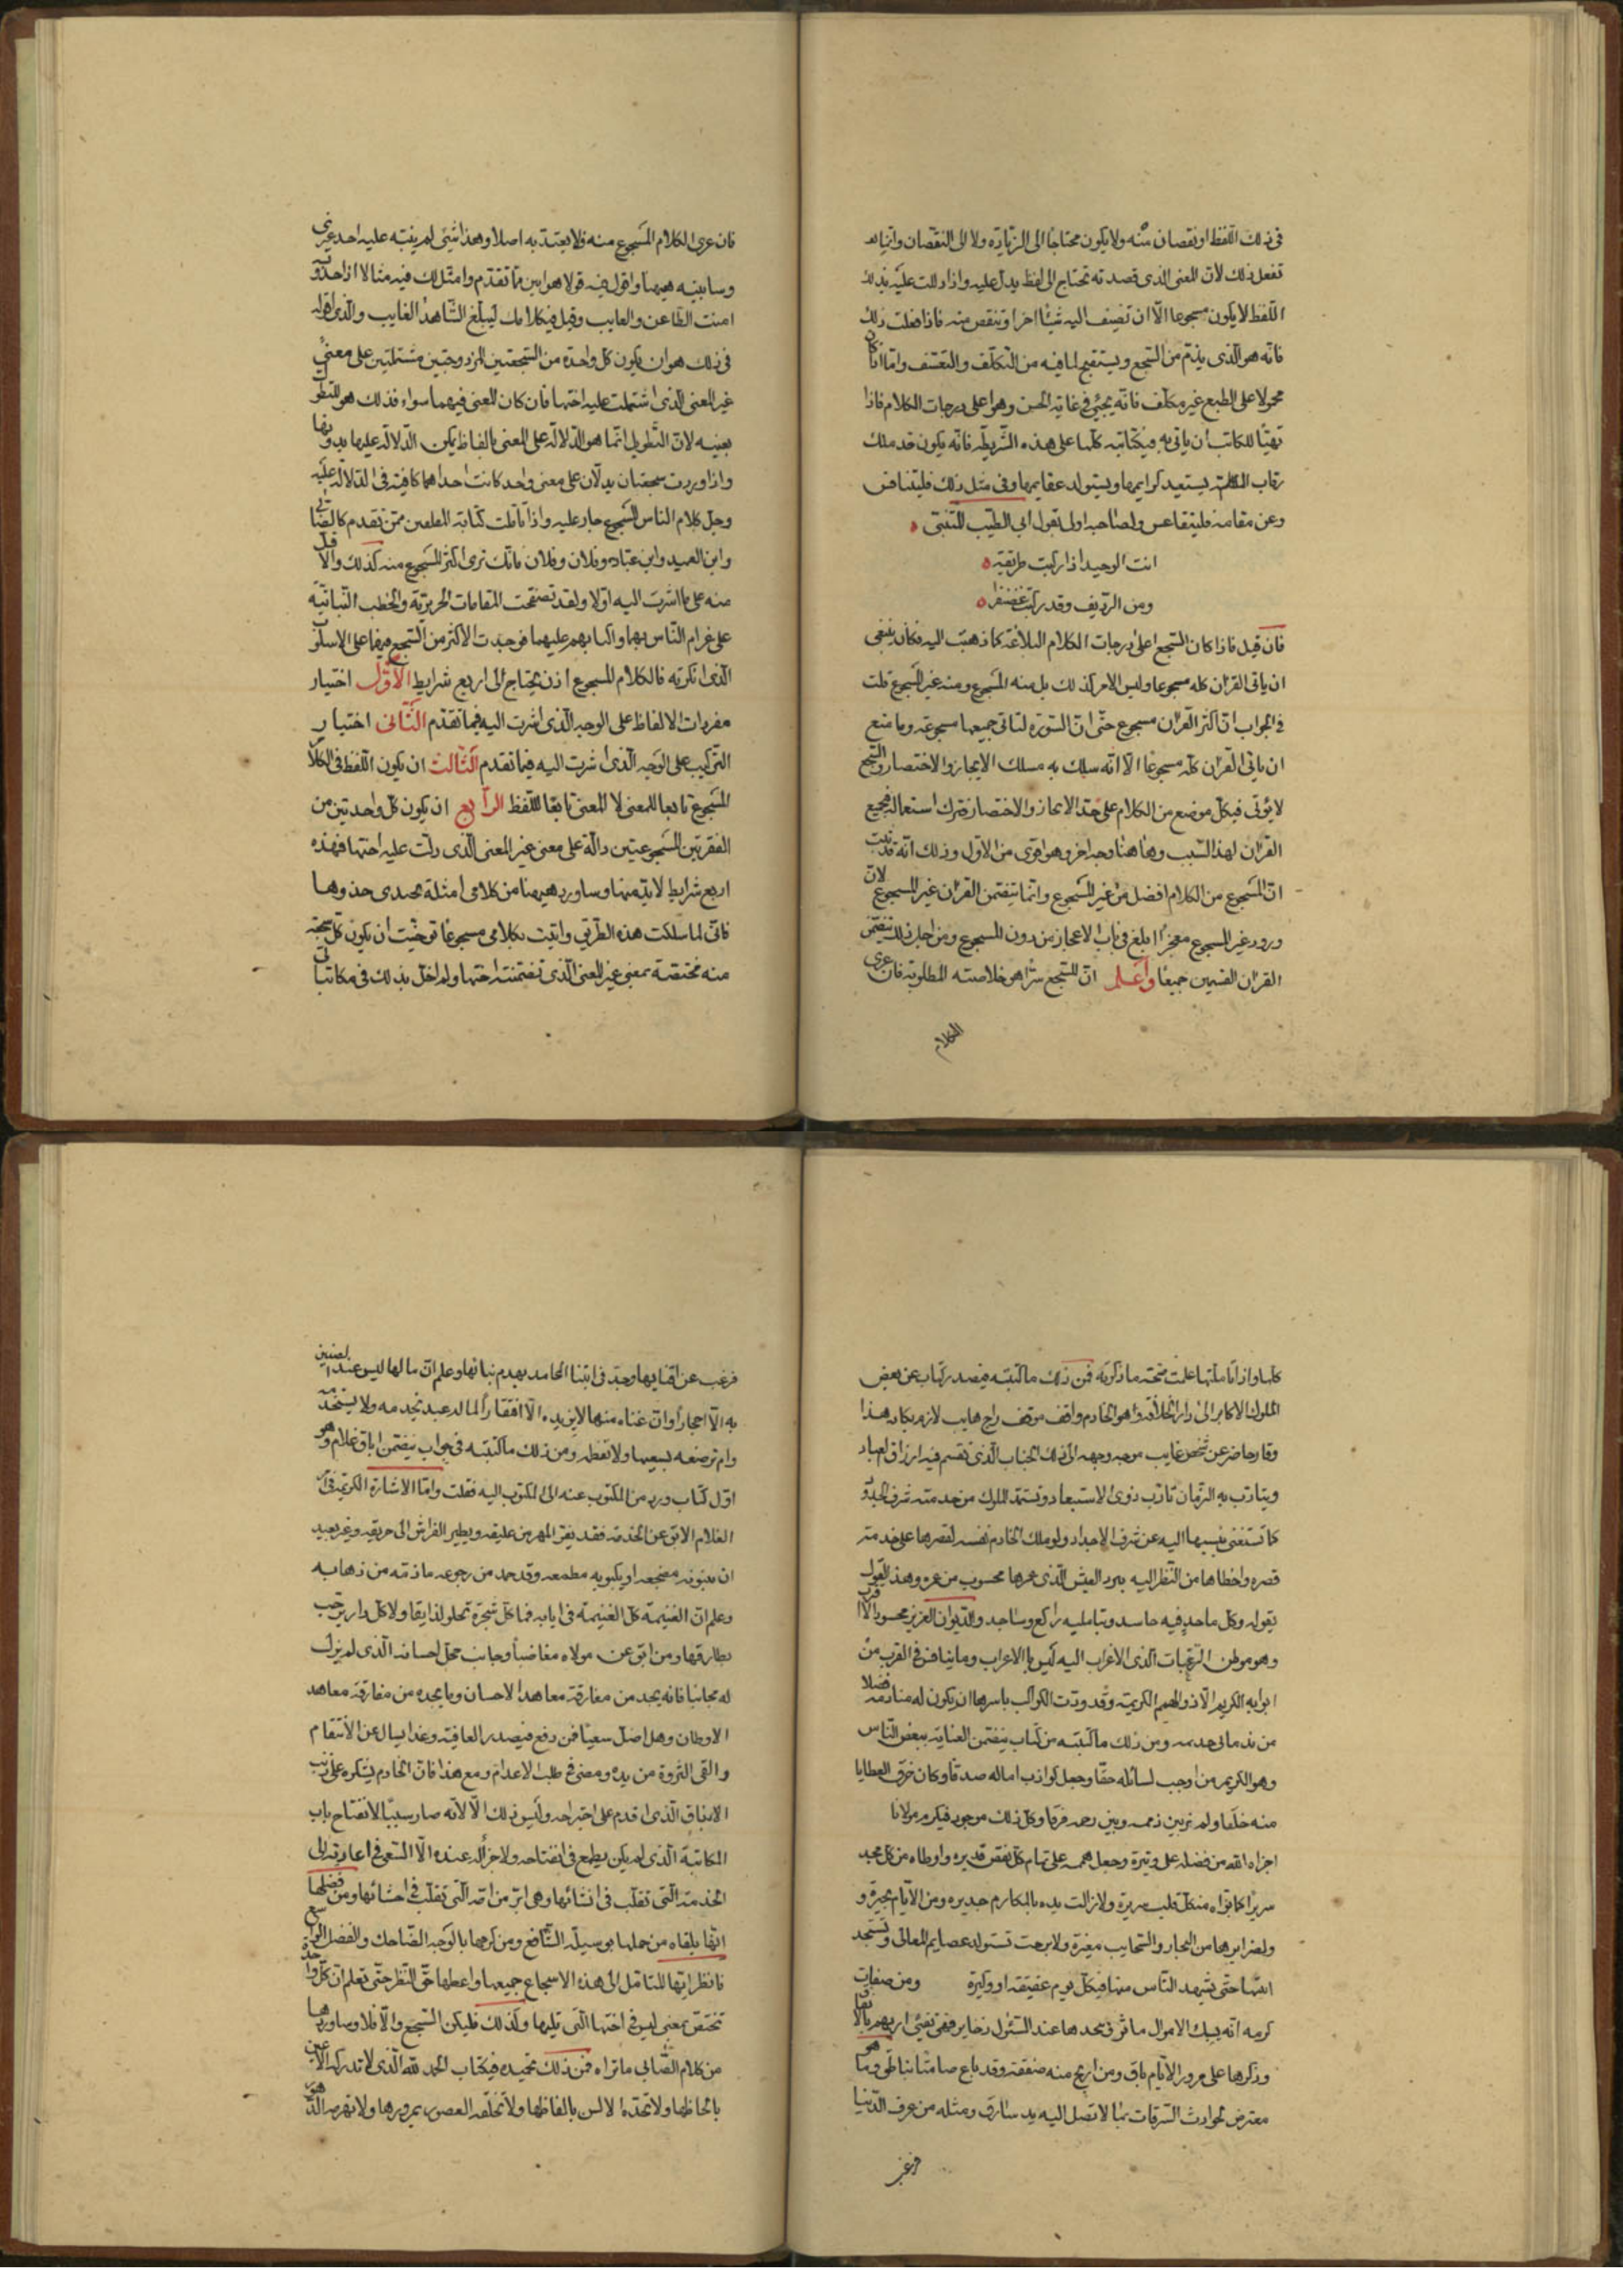 في ذلك اللفظ او نقصان منه ولا يكون محتاجا الى الزيادة ولا الى النقصان وانما
تفعل ذلك لان المعنى الذى قصدته تحتاج الى لفظ يدل عليه واذا دللت عليه بذلك
اللفظ لا يكون مسجوعا الا ان تضيف اليه شيئا اخر او تنقص منه فاذا فعلت ذلك
فانه هو الذى يذم من السجع ويستقبح لما فيه من التكلف والتعسف واما اذا كان
محمولا على الطبع غير متكلف فانه يجيئ في غاية الحسن وهو اعلى درجات الكلام فاذا
تهيا للكاتب ان ياتى به في كتابته كلها على هذه الشريطه فانه يكون قد ملك
رقاب الكلام يستعبد كرايمها ويستولد عقايمها وفى مثل ذلك فليتنافس
وعن مقامه فليتقاعس ولصاحبه اولى بقول ابى الطيب المتنبى
انت الوحيد اذا ركبت طريقة
ومن الرديف وقد ركبت غضنفرا
فان قيل فاذا كان السجع اعلى درجات الكلام البلاغة كما ذهبت اليه فكان ينبغى
ان ياتى القران كله مسجوعا وليس الامر كذلك بل منه المسجوع ومنه غير المسجوع قلت
في الجواب ان اكثر القران مسجوع حتى ان السورة لتاتى جميعها مسجوعه وما منع
ان ياتى القران كله مسجوعا الا انه سلك به مسلك الايجاز والاختصار والسجع
لا يؤتى في كل موضع من الكلام على حد الايجاز والاختصار فترك استعماله في جميع
القران لهذا السبب وهاهنا وجه اخر وهو اقوى من الاول وذلك انه قد ثبت
ان المسجوع من الكلام افضل من غير المسجوع وانما تضمن القران غير المسجوع لان
ورود غير المسجوع معجزا ابلغ في باب الاعجاز من دون المسجوع ومن اجل ذلك تضمن
القران القسمين جميعا واعلم ان للسجع سرا هو خلاصته المطلوبة فان عرى
الكلام
فان عرى الكلام المسجوع منه فلا يعتد به اصلا وهذا شئ لم ينبه عليه احد غيرى
وسابينه هيهنا واقول فيه قولا هو ابين مما تقدم وامثل لك فيه مثالا اذا حذوته
امنت الطاعن والعايب وقيل في كلامك ليبلغ الشاهد الغايب والذى اقوله
في ذلك هو ان يكون كل واحدة من السجعتين المزدوجتين مشتملتين على معنى
غير المعنى الذى اشتملت عليه اختها فان كان المعنى فيهما سواء فذلك هو التطويل
بعينه لان التطويل انما هو الدلالة على المعنى بالفاظ يمكن الدلالة عليها بدونها
واذا وردت سجعتان يدلان على معنى واحد كانت احداهما كافية فى الدلالة عليه
وجل كلام الناس المسجوع جار عليه واذا تاملت كتابة المفلقين ممن تقدم كالصابى
وابن العميد وابن عباد وفلان وفلان فانك ترى اكثر المسجوع منه كذلك والاقل
منه على ما اشرت اليه اولا ولقد تصفحت المقامات الحريرية والخطب النباتية
على غرام الناس بهما واكبابهم عليهما فوجدت الاكثر من السجع فيهما على الاسلوب
الذى انكرته فالكلام المسجوع اذن يحتاج الى اربع شرايط الاول اختيار
مفردات الالفاظ على الوجه الذى اشرت اليه فيما تقدم الثانى اختيار
التركيب على الوجه الذى اشرت اليه فيما تقدم الثالث ان يكون اللفظ فى الكلام
المسجوع تابعا للمعنى لا المعنى تابعا للفظ الرابع ان يكون كل واحدة من
الفقرتين المسجوعتين دالة على معنى غير المعنى الذى دلت عليه اختها فهذه
اربع شرايط لابد منها وساورد هيهنا من كلامى امثلة يحتذى حذوها
فانى لما سلكت هذه الطريق واتيت بكلامى مسجوعا توخيت ان يكون كل سجعة
منه مختصة بمعنى غير المعنى الذى تضمنته اختها ولم اخل بذلك فى مكاتباتى
كلها واذا تاملتها علمت صحة ما ذكرته فمن ذلك ما كتبته في صدر كتاب عن بعض
الملوك الاكابر الى دار الخلافة وهو الخادم واقف موقف راج هايب لازم بكتابه هذا
وقار حاضر عن شخص غايب موجه وجهه الى ذلك الجناب الذى تقسم فيه ارزاق العباد
ويتادب به الزمان تادب ذوى الاستبعاد وتستمد الملوك من خدمته شرف الجدود
كما تستغنى بنسبها اليه عن شرف الاجداد ولو ملك الخادم نفسه لقصرها على خدمة
قصره واحظاها من النظر اليه ببرد العيش الذى عمرها محسوب من عمره وهذا القول
يقوله وكل ماجد فيه حاسد وبتامليه راكع وساجد والديوان العزيز محسود الاقتراب
وهو موطن الرغبات الذى الاغراب اليه ليس بالاغراب وما ينافس في القرب من
ابوابه الكريم الا ذو الهمم الكريمة وقد ودت الكواكب باسرها ان تكون له منادمة فضلا
من ندمانى جذيمه ومن ذلك ما كتبته من كتاب يتضمن العناية ببعض الناس
وهو الكريم من اوجب لسائله حقا وجعل كواذب اماله صدقا وكان خرق العطايا
منه خلقا ولم ير بين ذممه وبين رحمه فرقا وكل ذلك موجود فى كرم مولانا
اجراه الله من فضله على وتيرة وجعل هممه على تمام كل نقص قديره واوطاه من كل مجد
سريرا كما بواه من كل قلب سريرة ولا زالت يده بالمكارم جديره ومن الايام مجيرة و
ولضرايرها من البحار والسحايب مغيرة ولا برحت تستولد عقايم المعالى وتستجد
ابنتها حتى يشهد الناس منها في كل يوم عقيقه او وكيرة ومن صفات
كرمه انه يسبك الاموال ماثر
وذكرها على مرور الايام باق ومن اربح منه صفقة وقد باع صامتا بناطق وما هو
معترض لحوادث السرقات بما لا تصل اليه يد سارق ومثله من عرف الدنيا
فرغب
فرغب عن اقتنايها وجد فى ابتنا المحامد بهدم بنائها وعلم ان مالها ليس عند الضنين
به الا احجارا وان غناه منها لا يزيده الا افتقارا
ومن ذلك ما كتبته في جواب يتضمن اباق غلام وهو
اول كتاب ورد من المكتوب عنه الى المكتوب اليه فقلت واما الاشارة الكريمة فى امر
الغلام الابق عن الخدمة فقد يفر المهر من عليقه ويطير الفراش الى حريقه وغير بعيد
ان ينبو به مضجعه او يكبو به مطمعه وقد حمد من رجوعه ما ذمه من ذهابه
وعلم ان الغنيمة كل الغنيمة فى ايابه فما كل شجرة تحلو لذايقها ولا كل دار ترحب
بطارقها ومن ابق عن مولاه مغاضبا وجانب محل احسانه الذى لم يزل
له مجانبا فانه يجد من مفارقة معاهد الاحسان ما يجده من مفارقة معاهد
الاوطان وهل اضل سعيا ممن دفع في صدر العافية وغدا يسال عن الاسقام
والقى الثروة من يده ومضى في طلب الاعدام ومع هذا فان الخادم يشكره على ذنب
الاباق الذى اقدم على اجتراحه وليس ذلك الا لانه صار سببا لافتتاح باب
المكاتبة الذى لم يكن يطمع فى افتتاحه ولا جزا له عنده الا السعى في اعادته الى
الخدمة التى تقلب فى انشائها وهى ابر من امه التى تقلب في احشائها ومن فضلها
انها تلقاه من حملها بوسيلة الشافع ومن كرمها بالوجه الضاحك والفضل الواسع
فانظر ايها المتامل الى هذه الاسجاع جميعها واعطها حق النظر حتى تعلم ان كل واحدة
تختص بمعنى ليس في اختها التى تليها وكذلك فليكن السجع والا فلا وساورد هيهنا
من كلام الصابى ما تراه فمن ذلك تحميده في كتاب الحمد لله الذى لا تدركه الاعين
بالحاظها ولا تحده الالسن بالفاظها ولا تخلقه العصور بمرورها ولا تهرمه الدهور